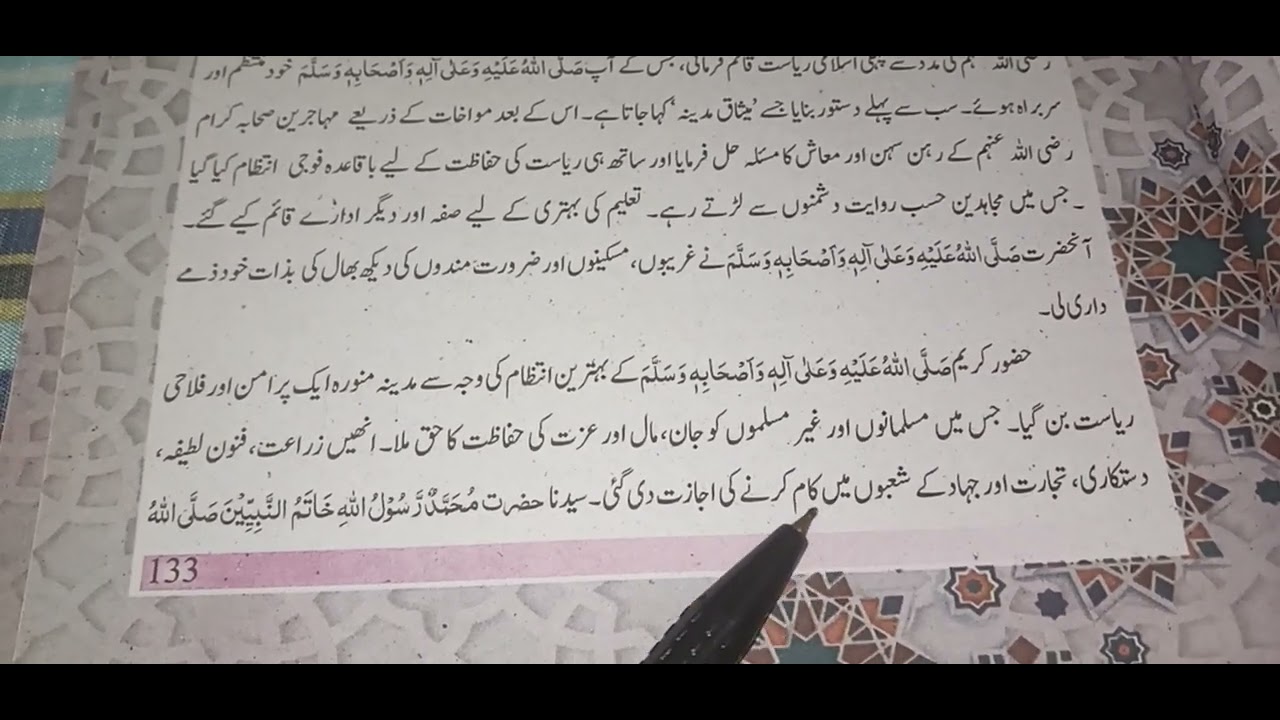 رضی اللہ عنہم کی مدد سے پہلی اسلامی ریاست قائم فرمائی، جس کے آپ صَلَّی اللہُ عَلَیْہِ وَعَلٰی آلِہٖ وَاَصْحَابِہٖ وَسَلَّمَ خود منتظم اور
سربراہ ہوئے۔ سب سے پہلے دستور بنایا جسے ’میثاق مدینہ‘ کہا جاتا ہے۔ اس کے بعد مواخات کے ذریعے مہاجرین صحابہ کرام
رضی اللہ عنہم کے رہن سہن اور معاش کا مسئلہ حل فرمایا اور ساتھ ہی ریاست کی حفاظت کے لیے باقاعدہ فوجی انتظام کیا گیا
۔ جس میں مجاہدین حسب روایت دشمنوں سے لڑتے رہے۔ تعلیم کی بہتری کے لیے صفہ اور دیگر ادارے قائم کیے گئے۔
آنحضرت صَلَّی اللہُ عَلَیْہِ وَعَلٰی آلِہٖ وَاَصْحَابِہٖ وَسَلَّمَ نے غریبوں، مسکینوں اور ضرورت مندوں کی دیکھ بھال کی بذات خود ذمے
داری لی۔
حضور کریم صَلَّی اللہُ عَلَیْہِ وَعَلٰی آلِہٖ وَاَصْحَابِہٖ وَسَلَّمَ کے بہترین انتظام کی وجہ سے مدینہ منورہ ایک پر امن اور فلاحی
ریاست بن گیا۔ جس میں مسلمانوں اور غیر مسلموں کو جان، مال اور عزت کی حفاظت کا حق ملا۔ انھیں زراعت، فنون لطیفہ،
دستکاری، تجارت اور جہاد کے شعبوں میں کام کرنے کی اجازت دی گئی۔ سیدنا حضرت مُحَمَّدٌ رَّسُوْلُ اللہِ خَاتَمُ النَّبِیِّیْنَ صَلَّی اللہُ
133